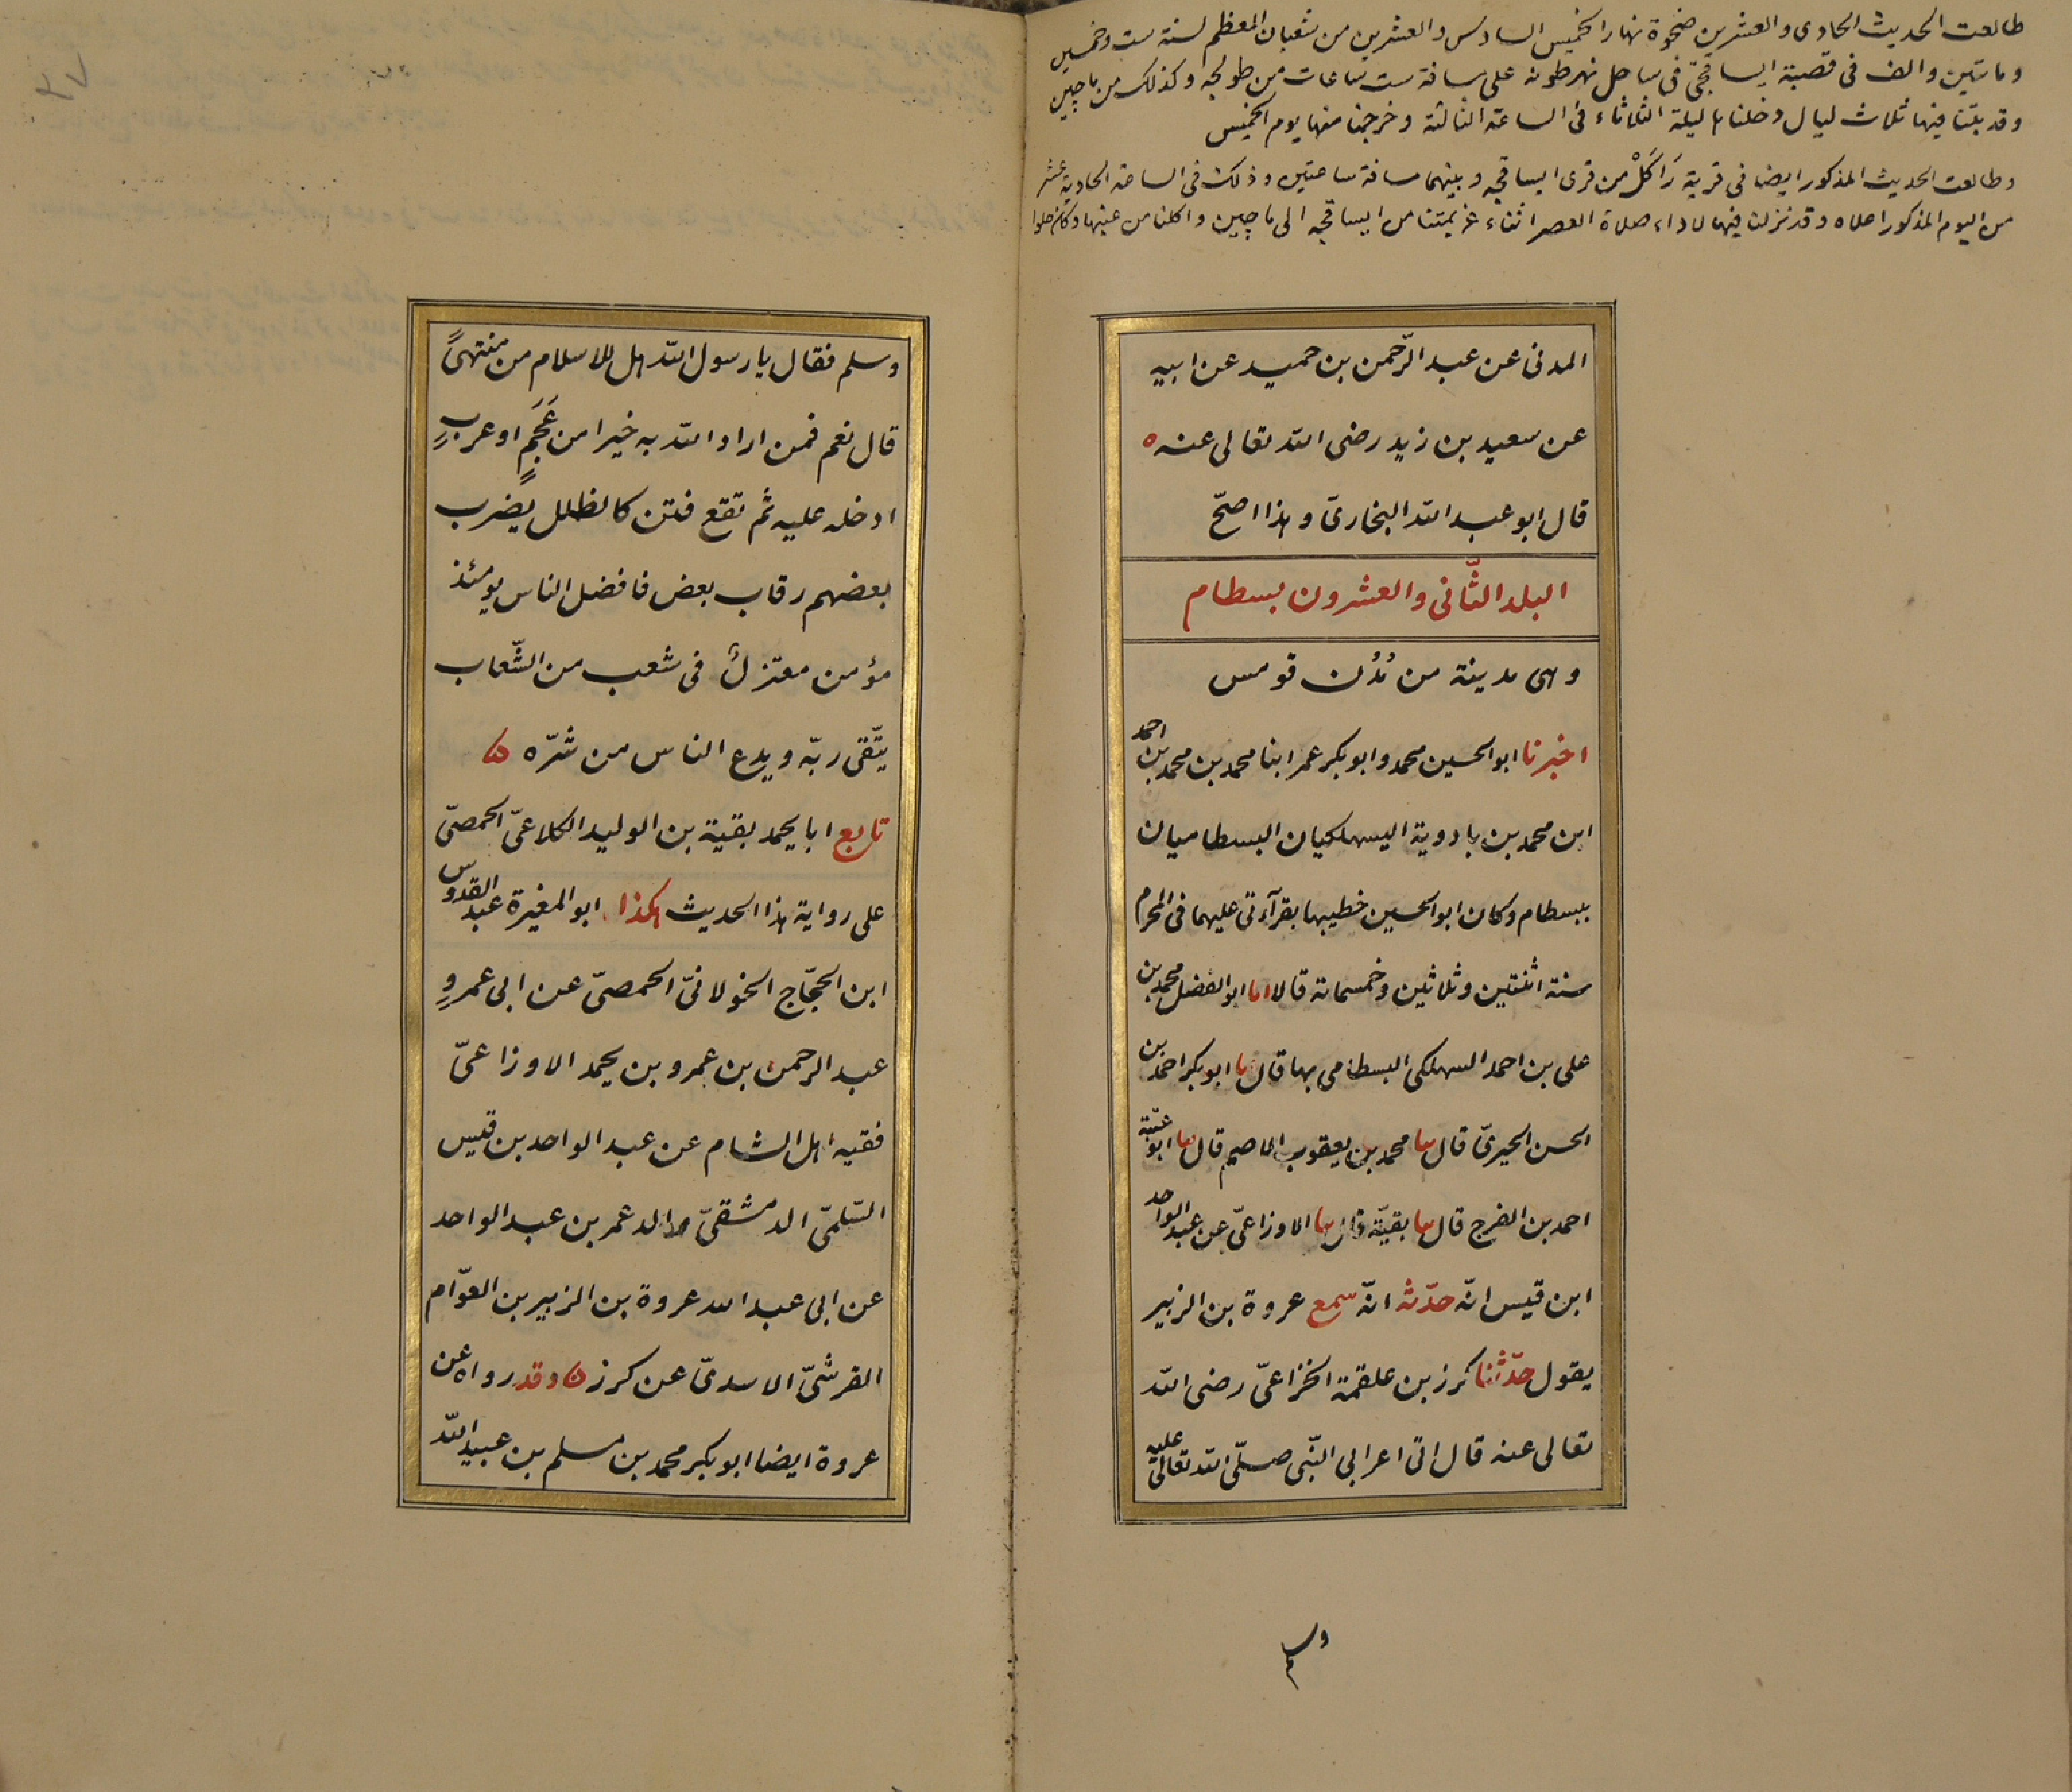 طالعت الحديث الحادى والعشرين ضحوة نهار الخميس السادس والعشرين من شعبان المعظم لسنة ست وخمسين
ومائتين والف فى قصبة ايساقجى فى ساحل نهر طونه على مسافة ست ساعات من طولجه وكذلك من ماچين
وقد بتنا فيها ثلاث ليال دخلنا ليلة الثلاثاء فى الساعة الثالثة وخرجنا منها يوم الخميس
وطالعت الحديث المذكور ايضا فى قرية رَاكَلْ من قرى ايساقجه وبينهما مسافة ساعتين وذلك فى الساعة الحادية عشر
من اليوم المذكور اعلاه وقد نزلنا فيها لاداء صلاة العصر اثناء عزيمتنا من ايساقجه الى ماچين واكلنا من عنبها وكان حلوا
المدنى عن عبد الرّحمن بن حميد عن ابيه
عن سعيد بن زيد رضى الله تعالى عنه ه
قال ابو عبد الله البخارىّ وهذا اصحّ
البلد الثّانى والعشرون بسطام
وهى مدينة من مُدُن قومس
اخبرنا ابو الحسين محمد وابو بكر عمر ابنا محمد بن محمد بن احمد
ابن محمد بن بادوية السهلكيان البسطاميان
ببسطام وكان ابو الحسين خطيبها بقرآءتى عليهما فى المحرم
سنة اثنتين وثلاثين وخمسمائة قالا انا ابو الفضل محمد بن
على بن احمد السهلكى البسطامى بها قال نا ابو بكر احمد بن
الحسن الحيرىّ قال نا محمد بن يعقوب الاصم قال نا ابو عتبة
احمد بن الفرج قال نا بقيّة قال نا الاوزاعىّ عن عبد الواحد
ابن قيس انّه حدّثه انّه سمع عروة بن الزبير
يقول حدّثنا كرز بن علقمة الخزاعىّ رضى الله
تعالى عنه قال اتى اعرابى النّبى صلّى الله تعالى عليه
وسلم
وسلم فقال يا رسول الله هل للاسلام من منتهىً
قال نعم فمن اراد الله به خيرا من عَجَمٍ او عربٍ
ادخله عليه ثم تقع فتن كالظلل يضرب
بعضهم رقاب بعض فافضل الناس يومئذ
مؤمن معتزل فى شعب من الشّعاب
يتّقى ربّه ويدع الناس من شرّه ه
تابع ابا يحمد بقية بن الوليد الكلاعىّ الحمصىّ
على رواية هذا الحديث هكذا ابو المغيرة عبد القدوس
ابن الحجّاج الخولانىّ الحمصىّ عن ابى عمرٍو
عبد الرحمن بن عمرو بن يحمد الاوزاعىّ
فقيه اهل الشام عن عبد الواحد بن قيس
السّلمىّ الدمشقىّ والد عمر بن عبد الواحد
عن ابى عبد الله عروة بن الزبير بن العوّام
القرشىّ الاسدىّ عن كرز ه وقد رواه عن
عروة ايضا ابو بكر محمد بن مسلم بن عبيد الله